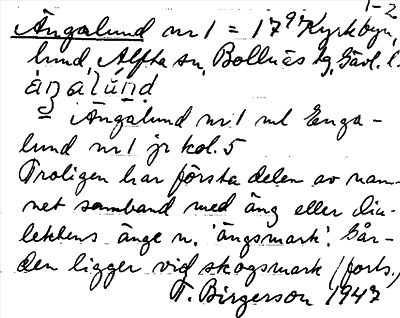 1-2
Ängalund nr 1 = 17 97 Kyrkbyn,
lund, Alfta sn, Bollnäs tg, Gävl. l.
= Ängalund nr 1 ml Enga-
lund nr 1 jr kol. 5
Troligen har första delen av nam-
net samband med äng eller dia-
lektens änge n. 'ängsmark'. Går-
den ligger vid skogsmark (forts.)
T. Birgerson 1947